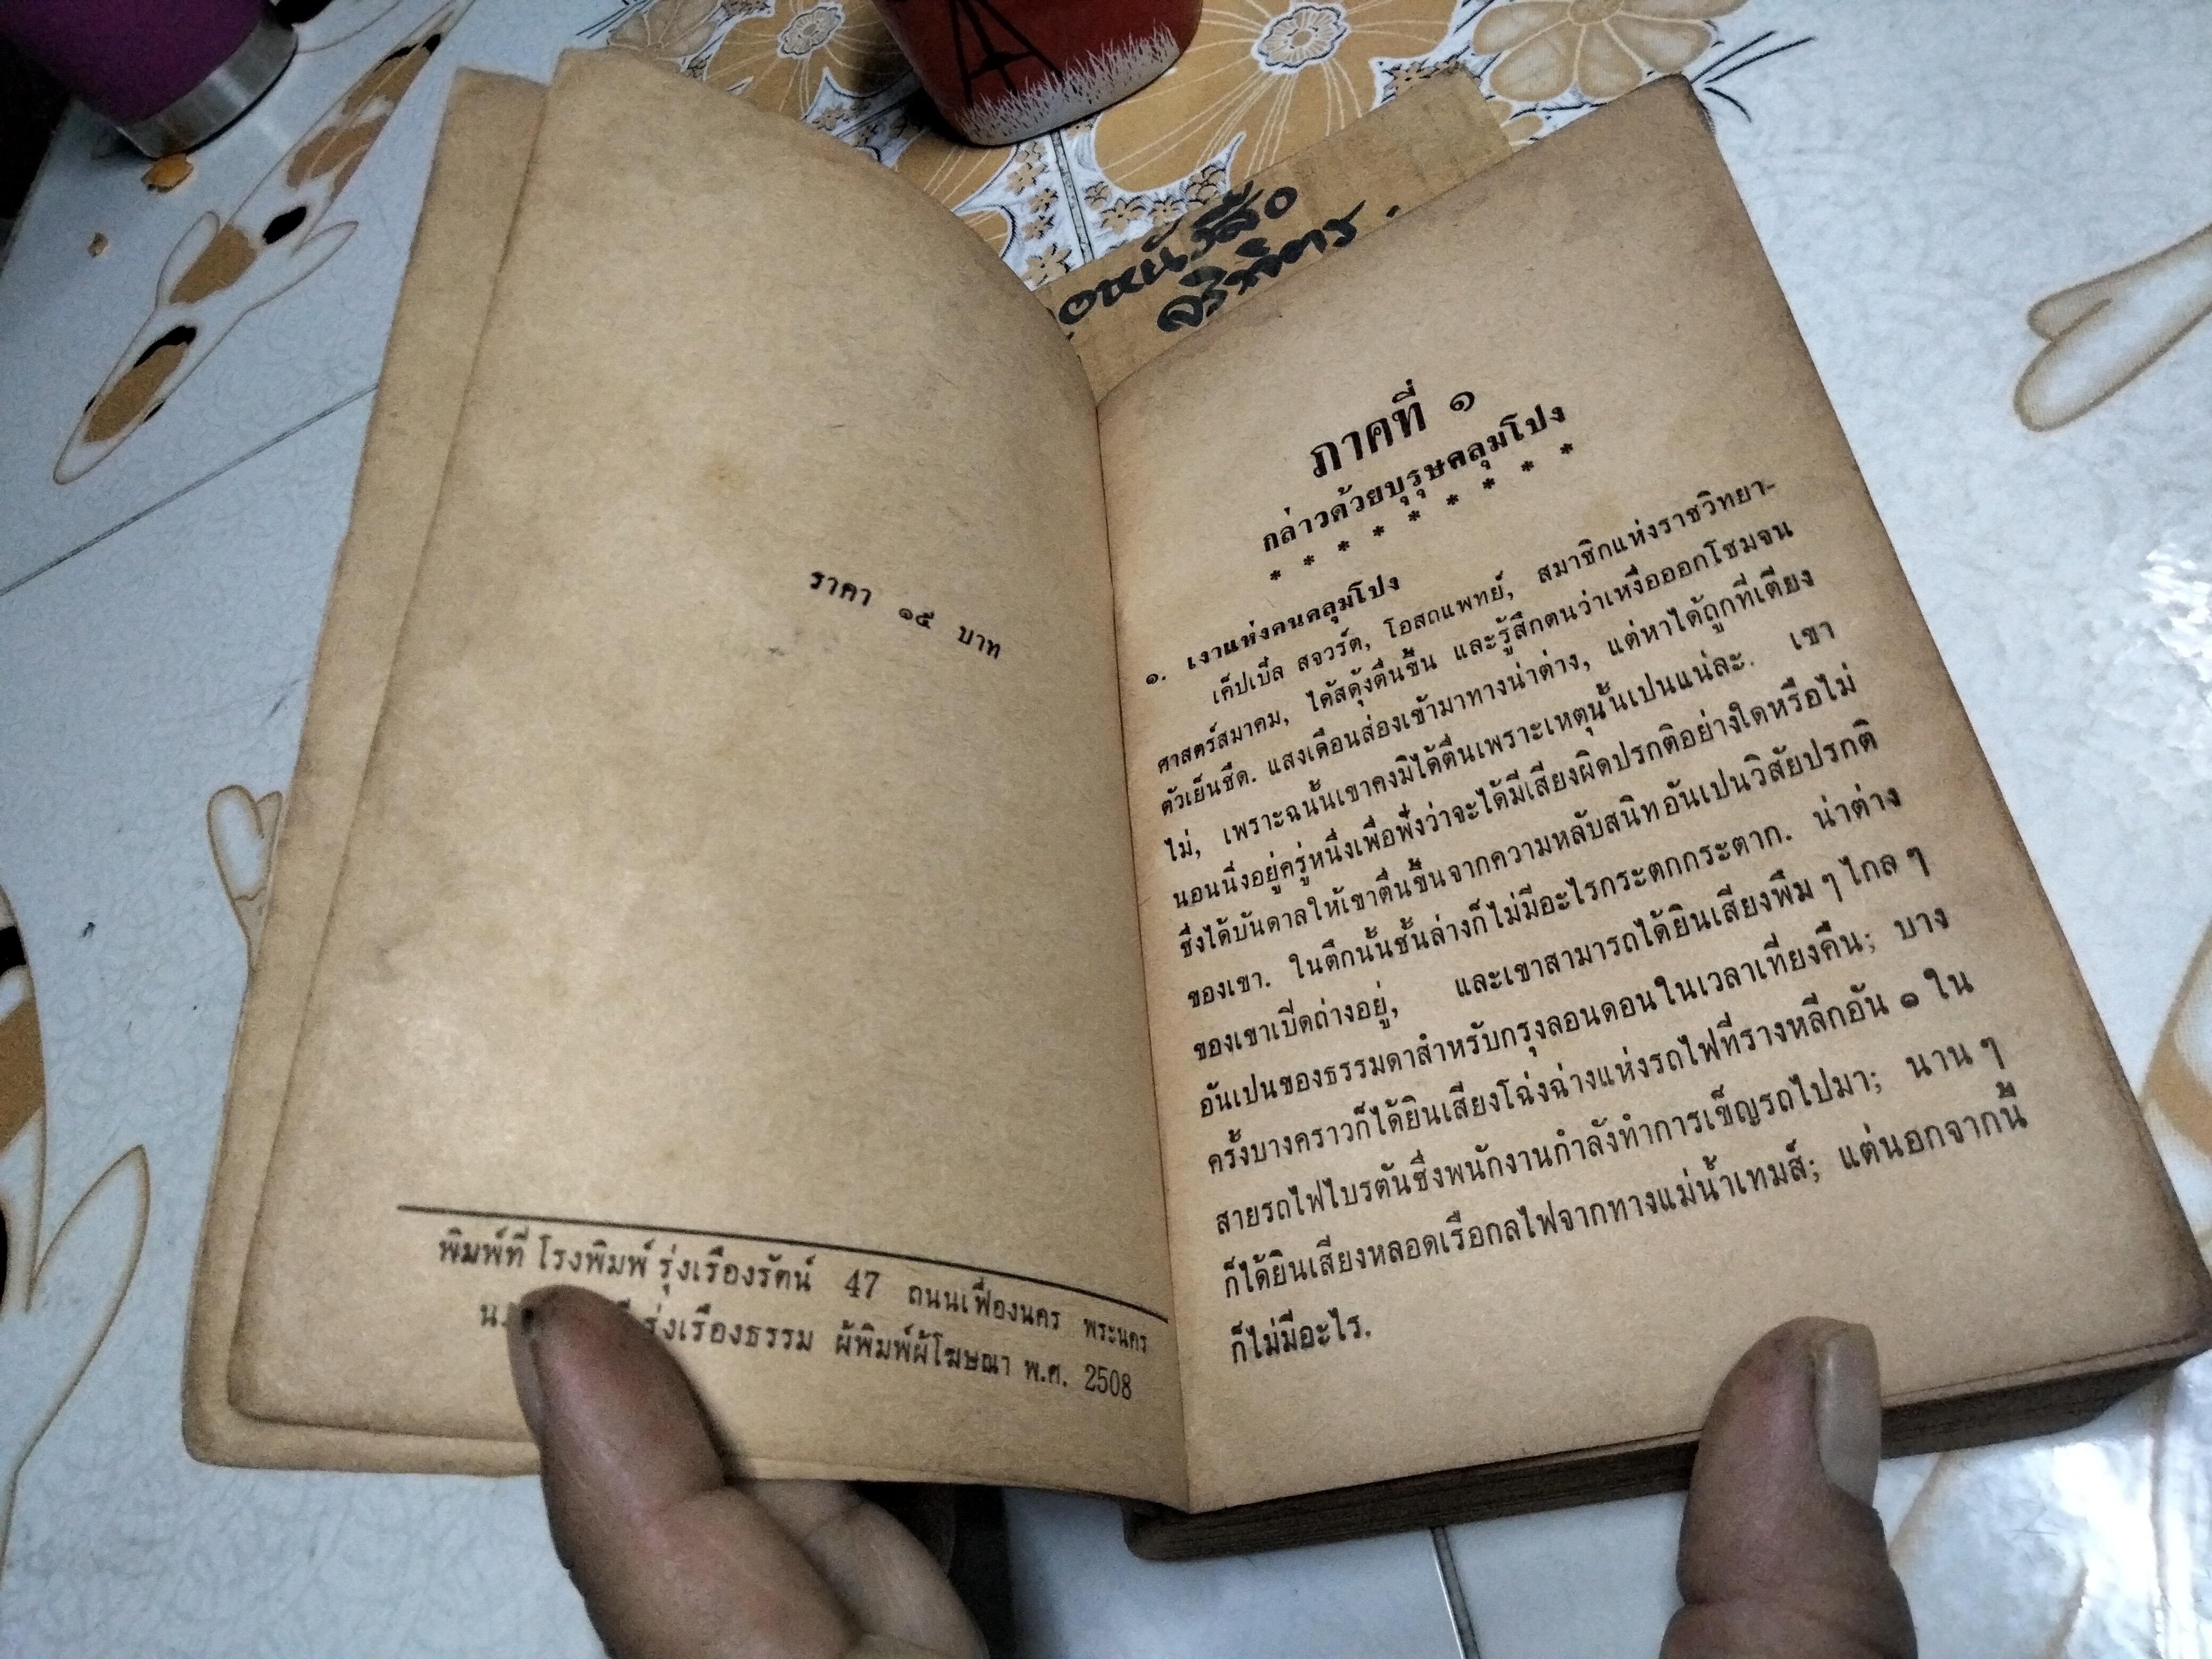 ราคา ๑๕ บาท
พิมพ์ที่ โรงพิมพ์ รุ่งเรืองรัตน์ 47 ถนนเฟื่องนคร พระนคร
รุ่งเรืองธรรม ผู้พิมพ์ผู้โฆษณา พ.ศ. 2508
ภาคที่ ๑
กล่าวด้วยบุรุษคลุมโปง
* * * * * * * * *
๑. เงาแห่งคนคลุมโปง
เค็ปเบิ้ล สจวร์ต, โอสถแพทย์, สมาชิกแห่งราชวิทยา-
ศาสตร์สมาคม, ได้สดุ้งตื่นขึ้น และรู้สึกตนว่าเหงื่อออกโซมจน
ตัวเย็นชืด. แสงเดือนส่องเข้ามาทางน่าต่าง, แต่หาได้ถูกที่เตียง
ไม่, เพราะฉนั้นเขาคงมิได้ตื่นเพราะเหตุนั้นเปนแน่ละ. เขา
นอนนิ่งอยู่ครู่หนึ่งเพื่อฟังว่าจะได้มีเสียงผิดปรกติอย่างใดหรือไม่
ซึ่งได้บันดาลให้เขาตื่นขึ้นจากความหลับสนิทอันเปนวิสัยปรกติ
ของเขา. ในตึกนั้นชั้นล่างก็ไม่มีอะไรกระตกกระตาก. น่าต่าง
ของเขาเบีดถ่างอยู่, และเขาสามารถได้ยินเสียงพึม ๆ ไกล ๆ
อันเปนของธรรมดาสำหรับกรุงลอนดอนในเวลาเที่ยงคืน; บาง
ครั้งบางคราวก็ได้ยินเสียงโฉ่งฉ่างแห่งรถไฟที่รางหลีกอัน ๑ ใน
สายรถไฟไบรตันซึ่งพนักงานกำลังทำการเข็ญรถไปมา; นาน ๆ
ก็ได้ยินเสียงหลอดเรือกลไฟจากทางแม่น้ำเทมส์; แต่นอกจากนี้
ก็ไม่มีอะไร.